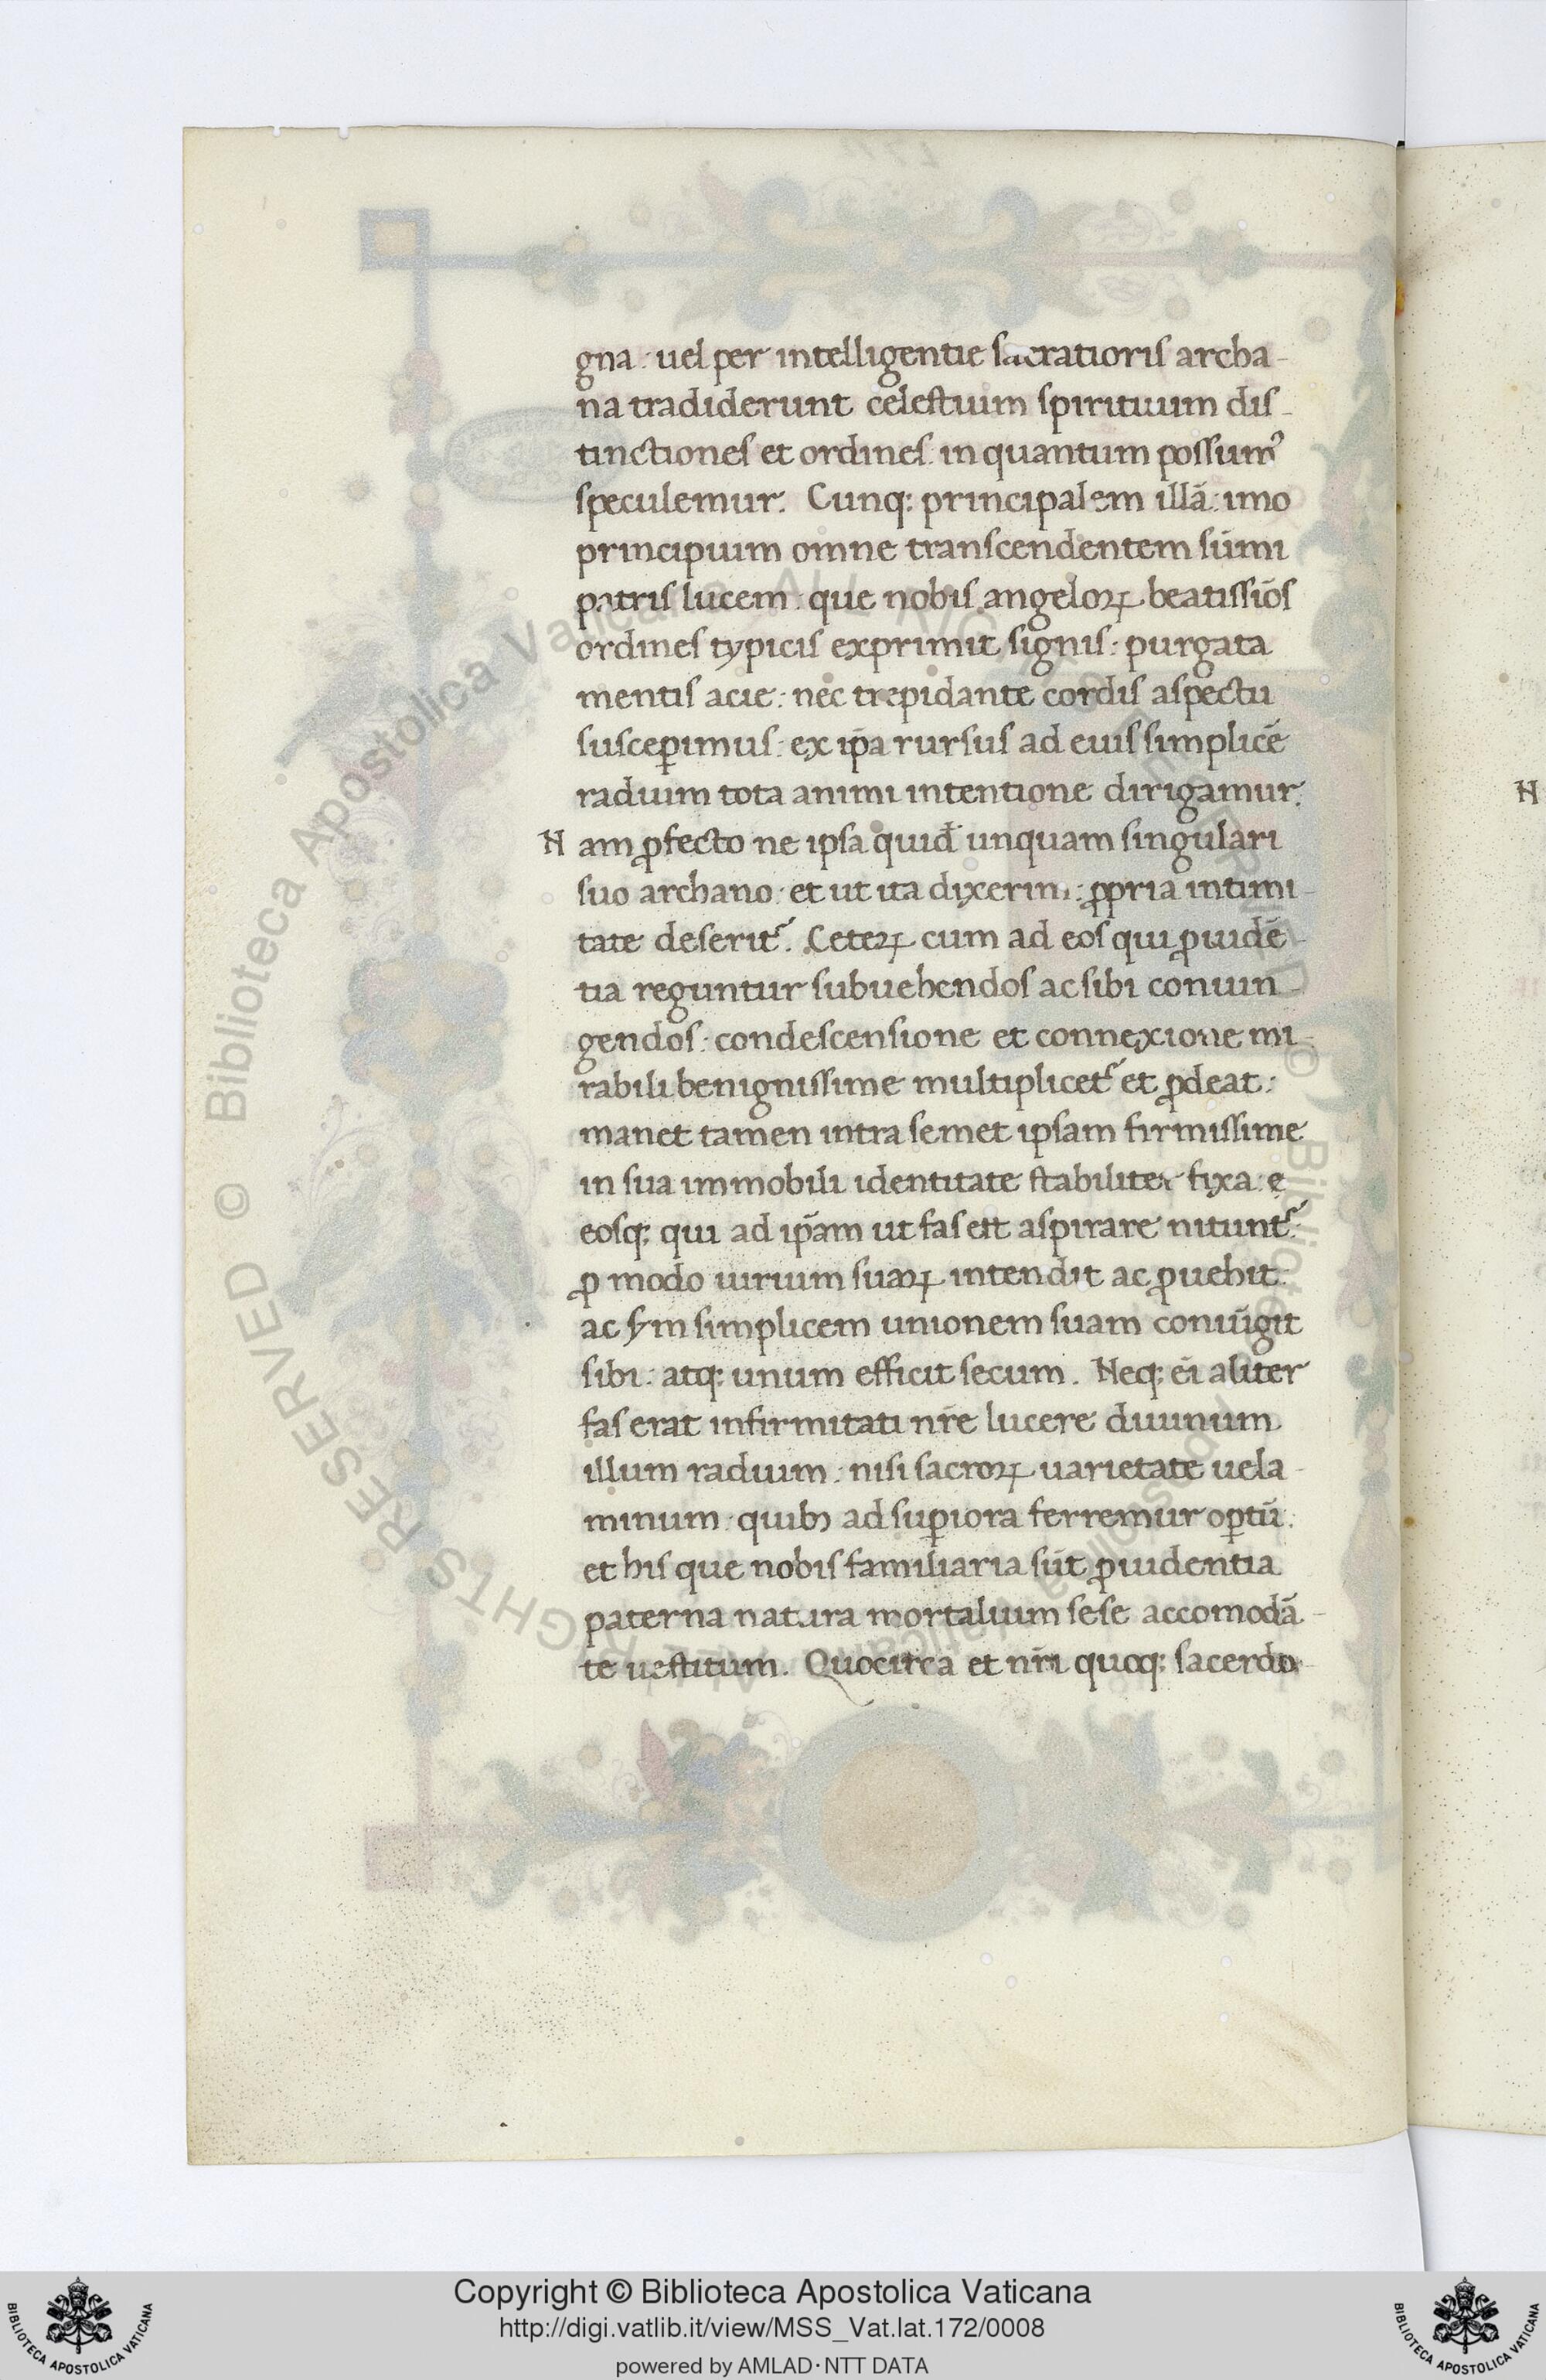 gna: uel per intelligentie sacratioris archa-
na tradiderunt celestium spirituum dis-
tinctiones et ordines: in quantum possumꝰ
speculemur. Cunq; principalem illā: imo
principium omne transcendentem sūmi
patris lucem: que nobis angeloꝝ beatissiōs
ordines typicis exprimit signis: purgata
mentis acie: nec trepidante cordis aspectu
susceꝑimus: ex ip̄a rursus ad eius simplicē
radium tota animi intentione dirigamur.
Nam ꝓfecto ne ipsa quid̄ unquam singulari
suo archano: et ut ita dixerim: ꝓpria intimi-
tate deserit᷑. Ceteꝝ cum ad eos qui ꝓuidē-
tia reguntur subuehendos ac sibi coniun-
gendos: condescensione et connexione mi-
rabili benignissime multiplicet᷑ et ꝓdeat:
manet tamen intra semet ipsam firmissime
in sua immobili identitate stabiliter fixa: e
eosq; qui ad ip̄am ut fas est aspirare nitunt᷑:
ꝓ modo uirium suaꝝ intendit ac ꝓuehit:
ac ẜm simplicem unionem suam coniūgit
sibi: atq; unum efficit secum. Neq; ei̅ aliter
fas erat infirmitati nr̄e lucere diuinum
illum radium: nisi sacroꝝ uarietate uela-
minum: quibꝫ ad suꝑiora ferremur oꝑtū:
et his que nobis familiaria sūt ꝓuidentia
paterna natura mortalium sese accomodā-
te uestitum. Quocirca et nr̄i quoq; sacerdo-
N
© Biblioteca Apostolica Vaticana ALL RIGHTS RESERVED
Copyright © Biblioteca Apostolica Vaticana
http://digi.vatlib.it/view/MSS_Vat.lat.172/0008
powered by AMLAD·NTT DATA
BIBLIOTECA APOSTOLICA VATICANA
BIBLIOTECA APOSTOLICA VATICANA